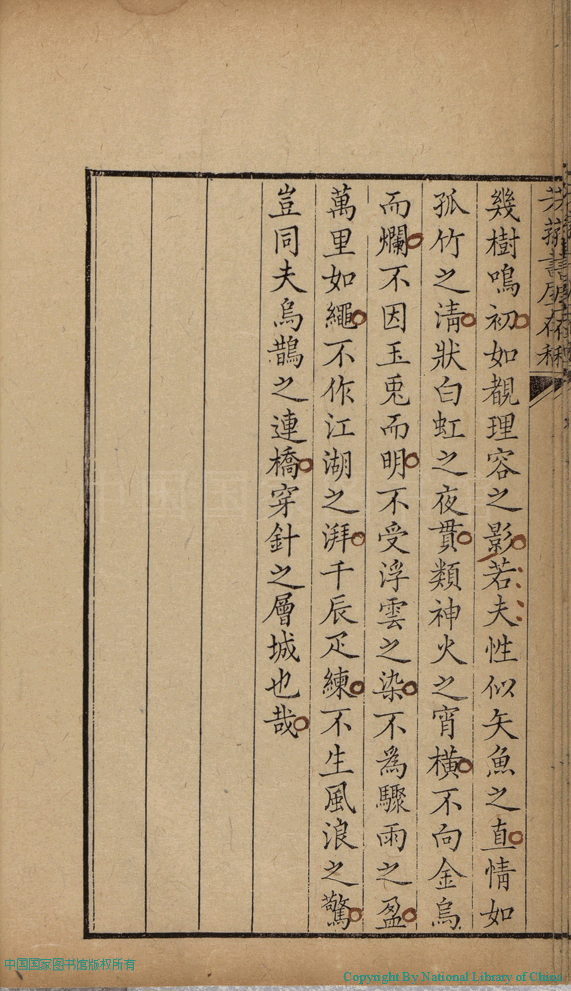 幾樹鳴初如覩理容之影若夫性似矢魚之直情如
孤竹之清狀白虹之夜貫類神火之宵橫不向金烏
而爛不因玉兎而明不受浮雲之染不為驟雨之盈
萬里如繩不作江湖之湃千辰疋練不生風浪之驚
豈同夫烏鵲之連橋穿針之層城也哉
中国国家图书馆版权所有
Copyright By National Library of China